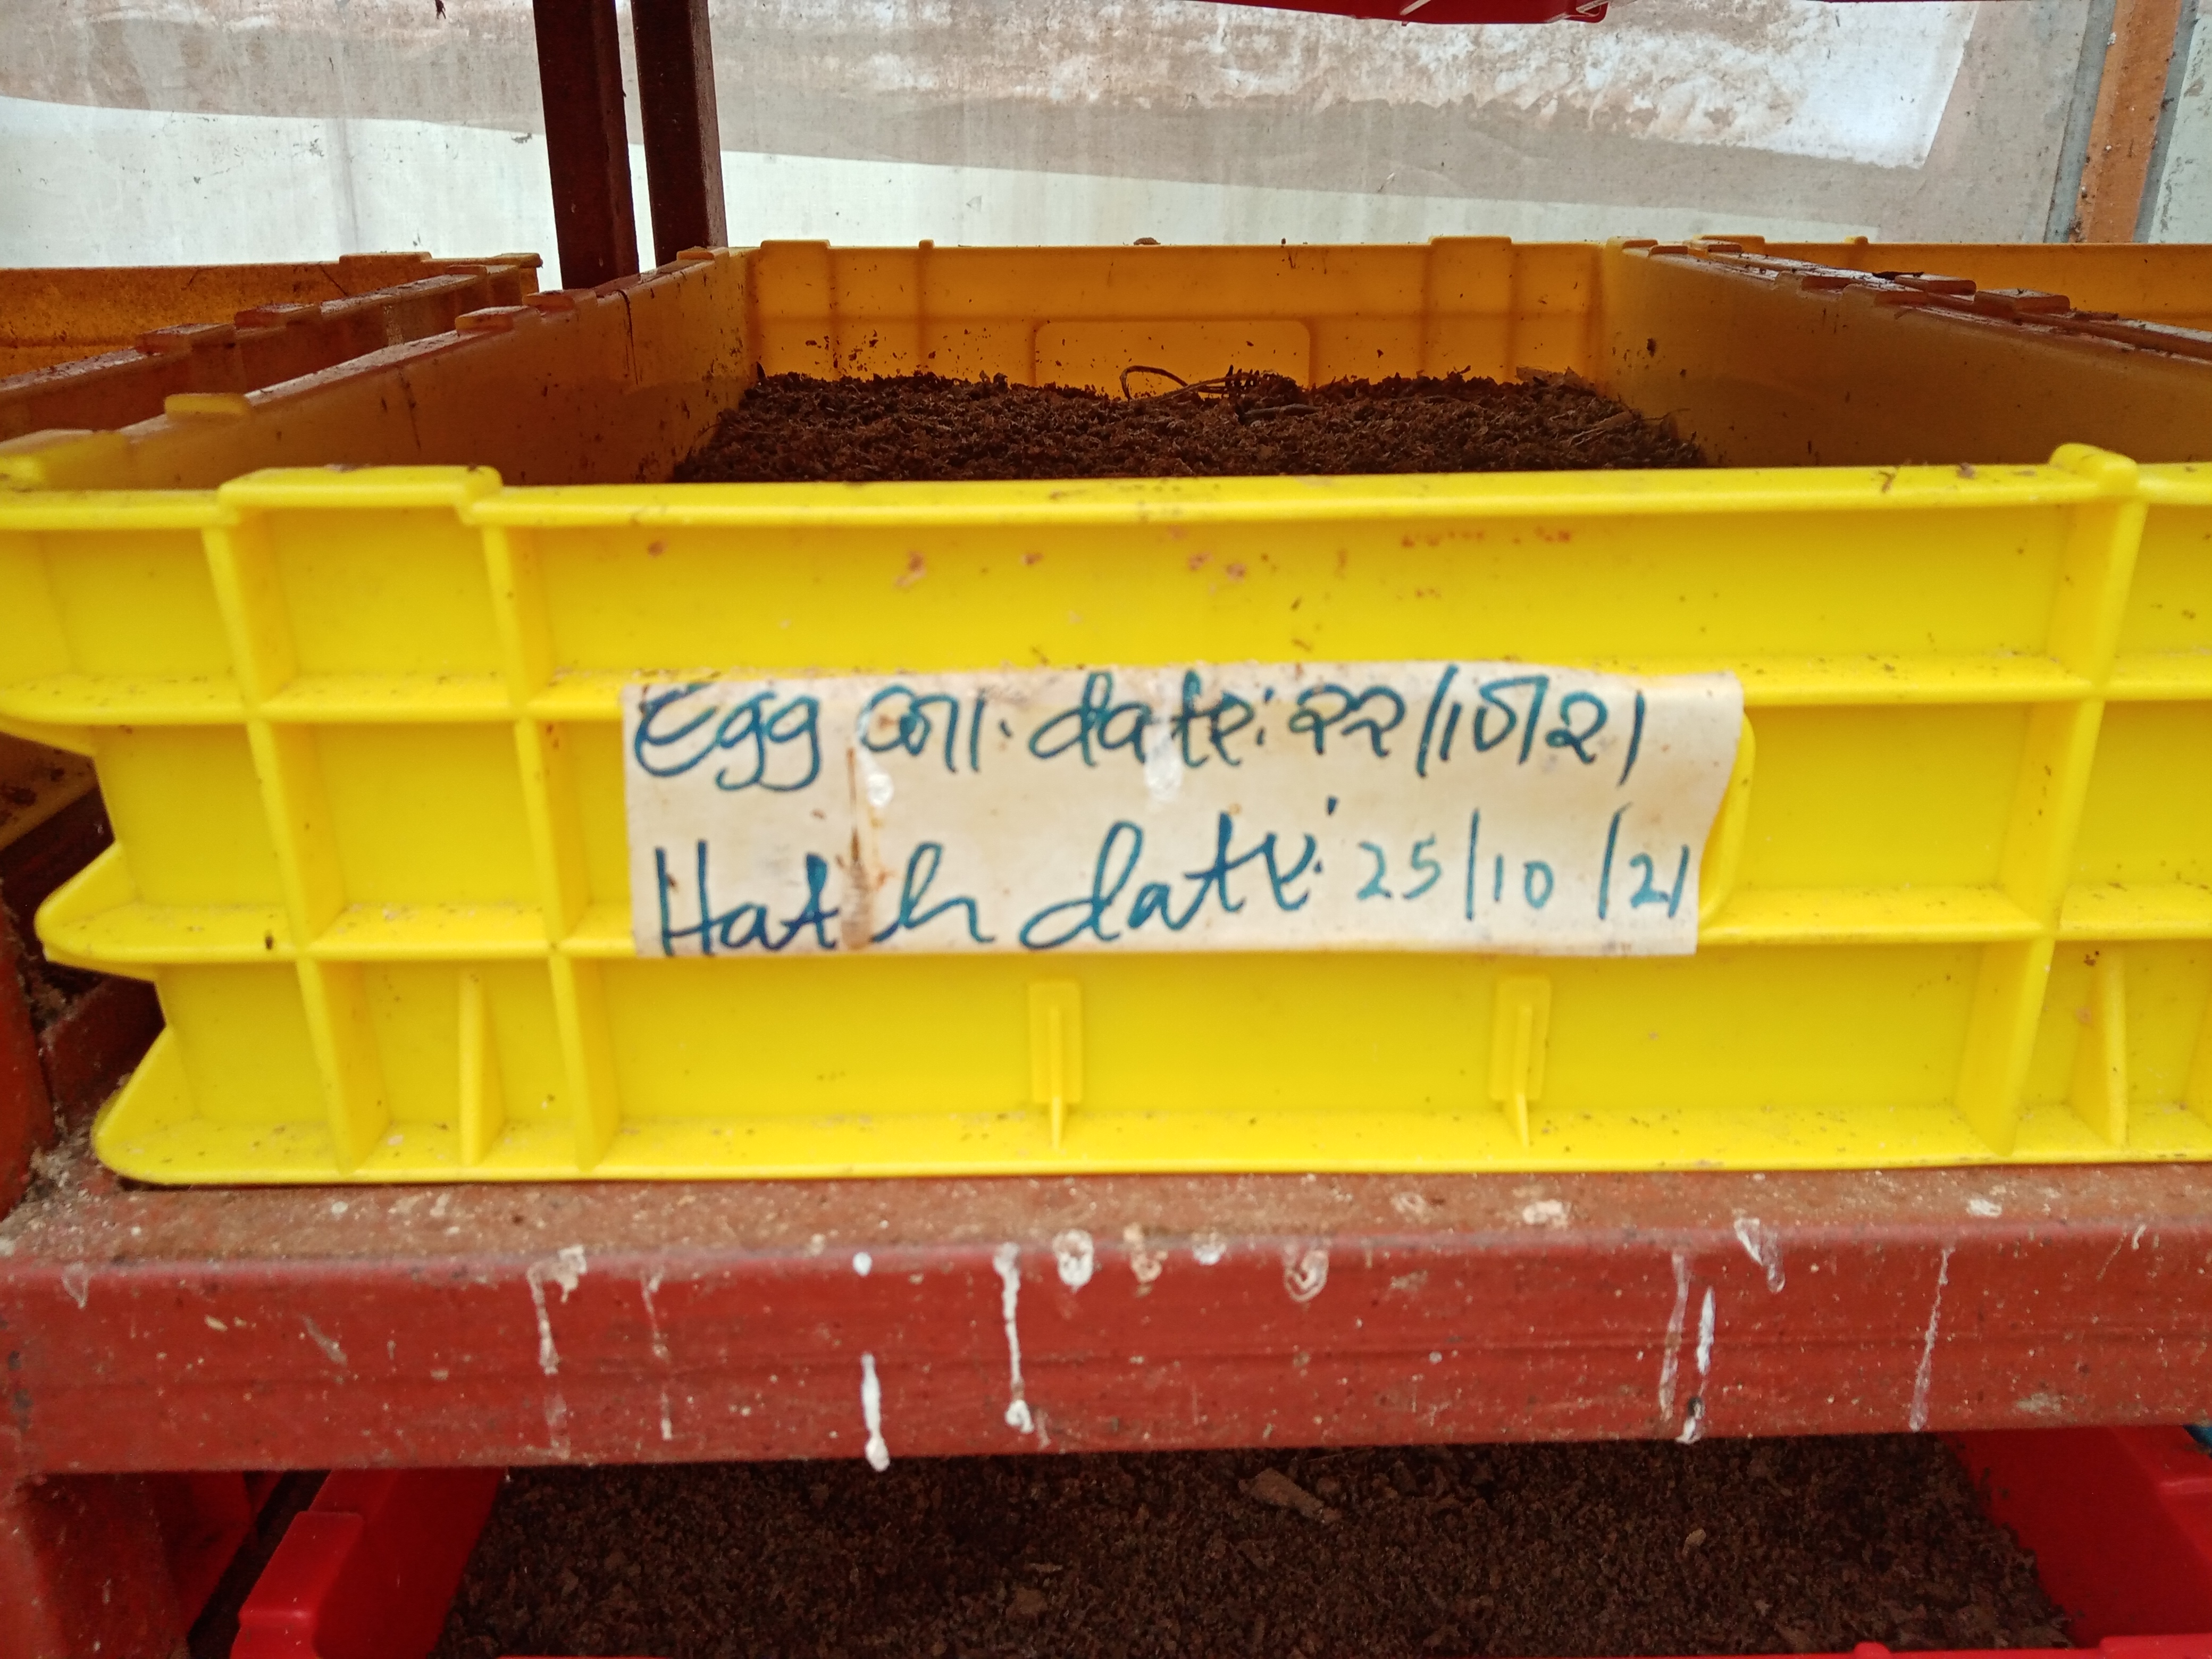 Egg coll. date: 22/10/21
Hatch date: 25/10/21